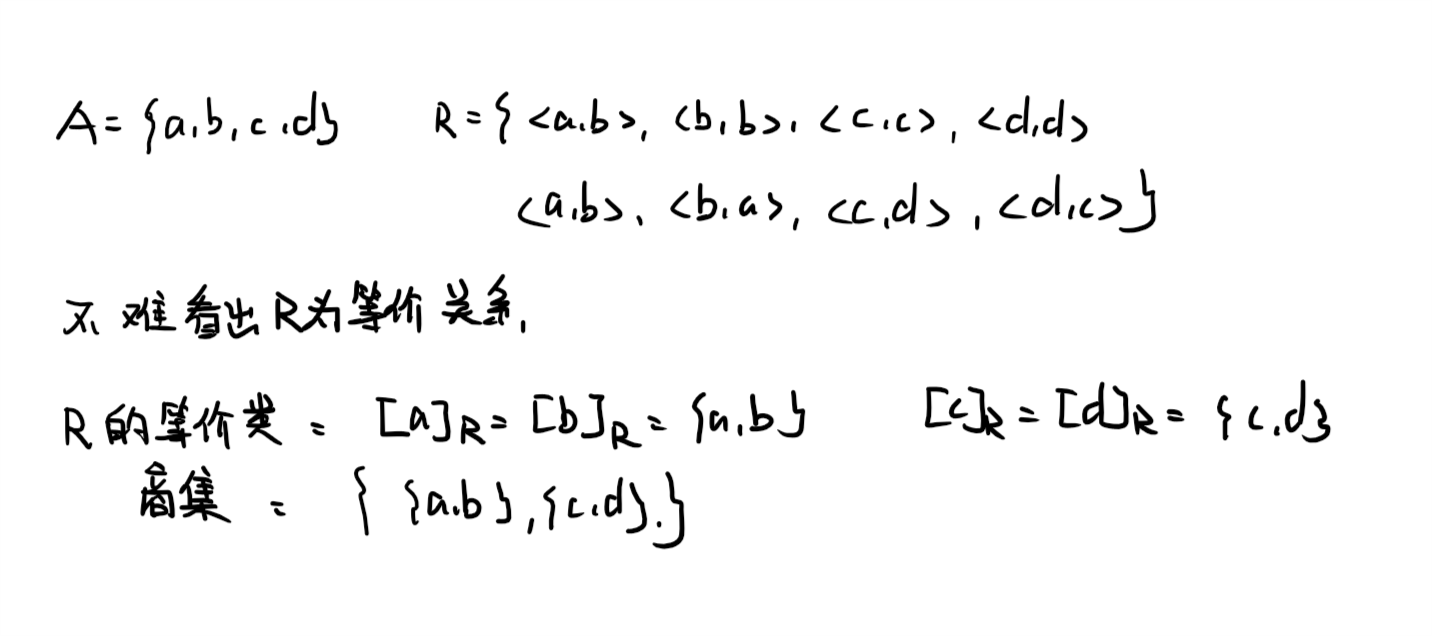 A = {a,b,c,d} R = { <a,b>, <b,b>, <c,c>, <d,d>
<a,b>、<b,a>, <c,d>, <d,c>}
不难看出R为等价关系,
R的等价类 = [a]R = [b]R = {a,b} [c]R = [d]R = {c,d}
商集 = { {a,b},{c,d}.}